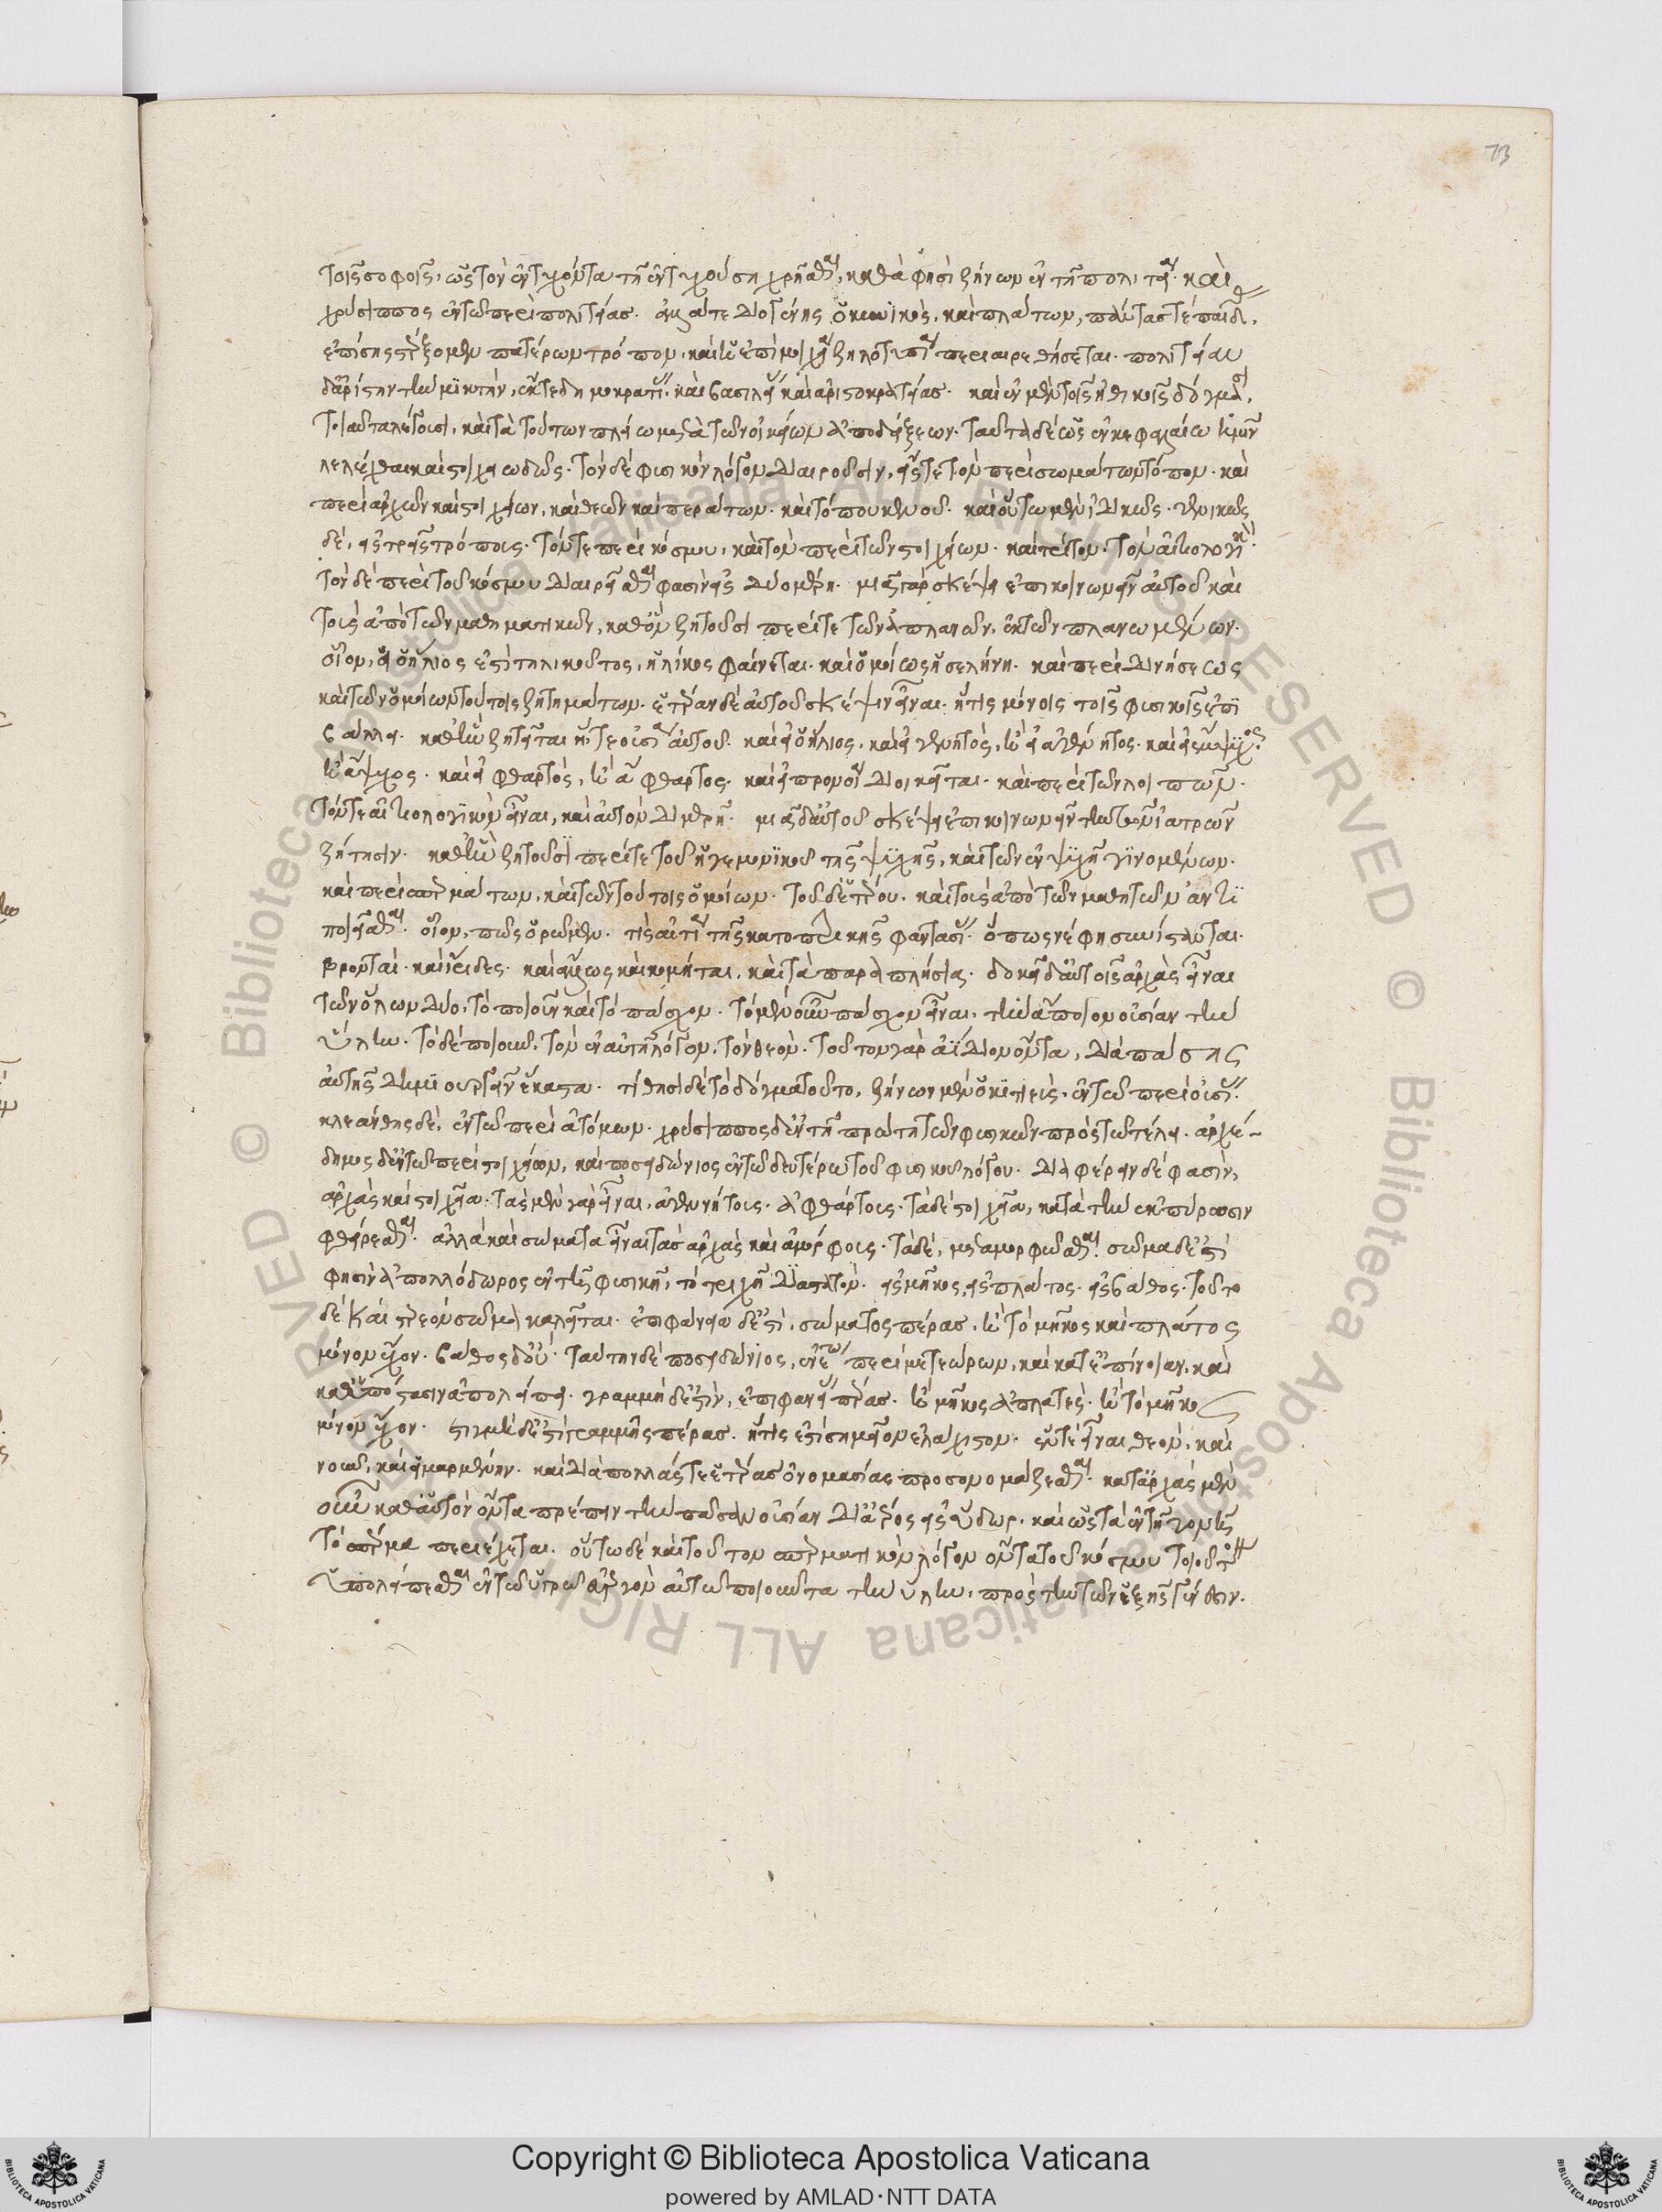 73
τοῖς σοφοῖς, ὥστε τὸν ἐντυχόντα τῇ ἐντυχούσῃ χρῆσθαι, καθά φησι ζήνων ἐν τῇ πολιτείᾳ· καὶ
χρύσιππος ἐν τῷ περὶ πολιτείας. ἀλλά τε διογένης ὁ κυνικὸς, καὶ πλάτων, πάντας τε παῖδας,
ἐπίσης στέρξομεν πατέρων τρόπον, καὶ ἡ ἐπὶ μοιχείᾳ ζηλοτυπία περιαιρεθήσεται. πολιτείαν
δ' ἀρίστην τὴν μικτὴν, ἔκ τε δημοκρατίας καὶ βασιλείας καὶ ἀριστοκρατείας. καὶ ἐν μὲν τοῖς ἠθικοῖς δόγμασι,
τοιαῦτα λέγουσι, καὶ τὰ τούτων πλείω μετὰ τῶν οἰκείων ἀποδείξεων. ταῦτα δὲ ὡς ἐν κεφαλαίῳ ἡμῖν
λελέχθαι καὶ στοιχειωδῶς. τὸν δὲ φυσικὸν λόγον διαιροῦσιν, εἴς τε τὸν περὶ σωμάτων τόπον. καὶ
περὶ ἀρχῶν καὶ στοιχείων, καὶ θεῶν καὶ περάτων. καὶ τόπου κενοῦ. καὶ οὕτω μὲν εἰδικῶς. γενικῶς
δὲ, εἰς τρεῖς τρόπους. τόν τε περὶ κόσμου, καὶ τὸν περὶ τῶν στοιχείων. καὶ τρίτον. τὸν αἰτιολογικόν.
τὸν δὲ περὶ τοῦ κόσμου διαιρεῖσθαι φασὶν εἰς δύο μέρη. μιᾷ γὰρ σκέψει ἐπικοινωνεῖν αὐτοῦ καὶ
τοὺς ἀπὸ τῶν μαθηματικῶν, καθ' ὃν ζητοῦσι περί τε τῶν ἀπλανῶν, κ τῶν πλανωμένων.
οἷον, εἰ ὁ ἥλιος ἐστὶ τηλικοῦτος, ἡλίκος φαίνεται. καὶ ὁμοίως ἡ σελήνη. καὶ περὶ δινήσεως
καὶ τῶν ὁμοίων τούτοις ζητημάτων. ἑτέραν δὲ αὐτοῦ σκέψιν εἶναι. ἥτις μόνοις τοῖς φυσικοῖς ἐπι
βάλλει. καθ' ἣν ζητεῖται ἥ τε οὐσία αὐτοῦ. καὶ εἰ ὁ ἥλιος, καὶ εἰ γενητὸς, ἢ εἰ ἀγένητος. καὶ εἰ ἔμψυχος
ἢ ἄψυχος. καὶ εἰ φθαρτὸς, ἢ ἄφθαρτος. καὶ εἰ προνοίᾳ διοικεῖται. καὶ περὶ τῶν λοιπῶν.
τόν τε αἰτιολογικὸν εἶναι, καὶ αὐτὸν διμερῆ. μιᾷ δ' αὐτοῦ σκέψει ἐπικοινωνεῖν τὴν τῶν ἰατρῶν
ζήτησιν. καθ' ἣν ζητοῦσι περί τε τοῦ ἡγεμονικοῦ τῆς ψυχῆς, καὶ τῶν ἐν ψυχῇ γινομένων.
καὶ περὶ σπερμάτων, καὶ τῶν τούτοις ὁμοίων. τοῦ δ' ἑτέρου. καὶ τοὺς ἀπὸ τῶν μαθητῶν ἀντι
ποιεῖσθαι. οἷον, πῶς ὁρῶμεν. τίς αἰτία τῆς κατοπτρικῆς φαντασίας. ὅπως νέφη συνίσταται.
βρονταὶ. καὶ ἴριδες. καὶ ἅλως καὶ κομήται. καὶ τὰ παραπλήσια. δοκεῖ δ' αὐτοῖς ἀρχὰς εἶναι
τῶν ὅλων δύο, τὸ ποιοῦν καὶ τὸ πάσχον. τὸ μὲν οὖν πάσχον εἶναι, τὴν ἄποιον οὐσίαν τὴν
ὕλην. τὸ δὲ ποιοῦν, τὸν ἐν αὐτῇ λόγον, τὸν θεὸν. τοῦτον γὰρ ἀΐδιον ὄντα, διὰ πάσης
αὐτῆς δημιουργεῖν ἕκαστα. τίθησι δὲ τὸ δόγμα τοῦτο, ζήνων μὲν ὁ κιτιεὺς, ἐν τῷ περὶ οὐσίας.
κλεάνθης δὲ, ἐν τῷ περὶ ἀτόμων. χρύσιππος δ' ἐν τῇ πρώτῃ τῶν φυσικῶν πρὸς τῷ τέλει. ἀρχέ-
δημος δ' ἐν τῷ περὶ στοιχείων, καὶ ποσειδώνιος ἐν τῷ δευτέρῳ τοῦ φυσικοῦ λόγου. διαφέρειν δέ φασιν,
ἀρχὰς καὶ στοιχεῖα. τὰς μὲν γὰρ εἶναι, ἀγενήτους. ἀφθάρτους. τὰ δὲ στοιχεῖα, κατὰ τὴν ἐκπύρωσιν
φθείρεσθαι. ἀλλὰ καὶ σώματα εἶναι τὰς ἀρχὰς καὶ ἀμόρφους. τὰ δὲ, μεμορφῶσθαι. σῶμα δ' ἐστί
φησὶν ἀπολλόδωρος ἐν τῇ φυσικῇ, τὸ τριχῇ διαστατόν. εἰς μῆκος, εἰς πλάτος. εἰς βάθος. τοῦτο
δὲ καὶ στερεὸν σῶμα καλεῖται. ἐπιφάνεια δ' ἐστὶ, σώματος πέρας, ἢ τὸ μῆκος καὶ πλάτος
μόνον ἔχον. βάθος δ' οὔ. ταύτην δὲ ποσειδώνιος, ἐν ε περὶ μετεώρων, καὶ κατ' ἐπίνοιαν, καὶ
καθ' ὑπόστασιν ἀπολείπει. γραμμὴ δ' ἐστὶν, ἐπιφανείας πέρας. ἢ μῆκος ἀπλατὲς. ἢ τὸ μῆκος
μόνον ἔχον. στιγμὴ δ' ἐστὶ γραμμῆς πέρας. ἥτις ἐστὶ σημεῖον ἐλάχιστον. ἕν τε εἶναι θεὸν, καὶ
νοῦν, καὶ εἱμαρμένην. καὶ δία πολλάς τε ἑτέρας ὀνομασίας προσονομάζεσθαι. κατ' ἀρχὰς μὲν
οὖν καθ' αὑτὸν ὄντα τρέπειν τὴν πᾶσαν οὐσίαν δι' ἀέρος εἰς ὕδωρ. καὶ ὥσπερ ἐν τῇ γονῇ
τὸ σπέρμα περιέχεται. οὕτω δὲ καὶ τοῦτον σπερματικὸν λόγον ὄντα τοῦ κόσμου τοιοῦτον
ὑπολείπεσθαι ἐν τῷ ὑγρῷ εὐεργὸν αὑτῷ ποιοῦντα τὴν ὕλην, πρὸς τὴν τῶν ἑξῆς γένεσιν.
Copyright © Biblioteca Apostolica Vaticana
powered by AMLAD·NTT DATA